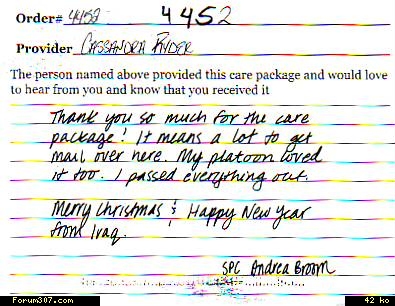 Order# 4452 4452
Provider CASSANDRA RYDER
The person named above provided this care package and would love
to hear from you and know that you received it
Thank you so much for the care
package! It means a lot to get
mail over here. My platoon loved
it too. I passed everything out.
Merry Christmas & Happy New Year
from Iraq.
SPC Andrea Broom
Forum307.com 42 ko